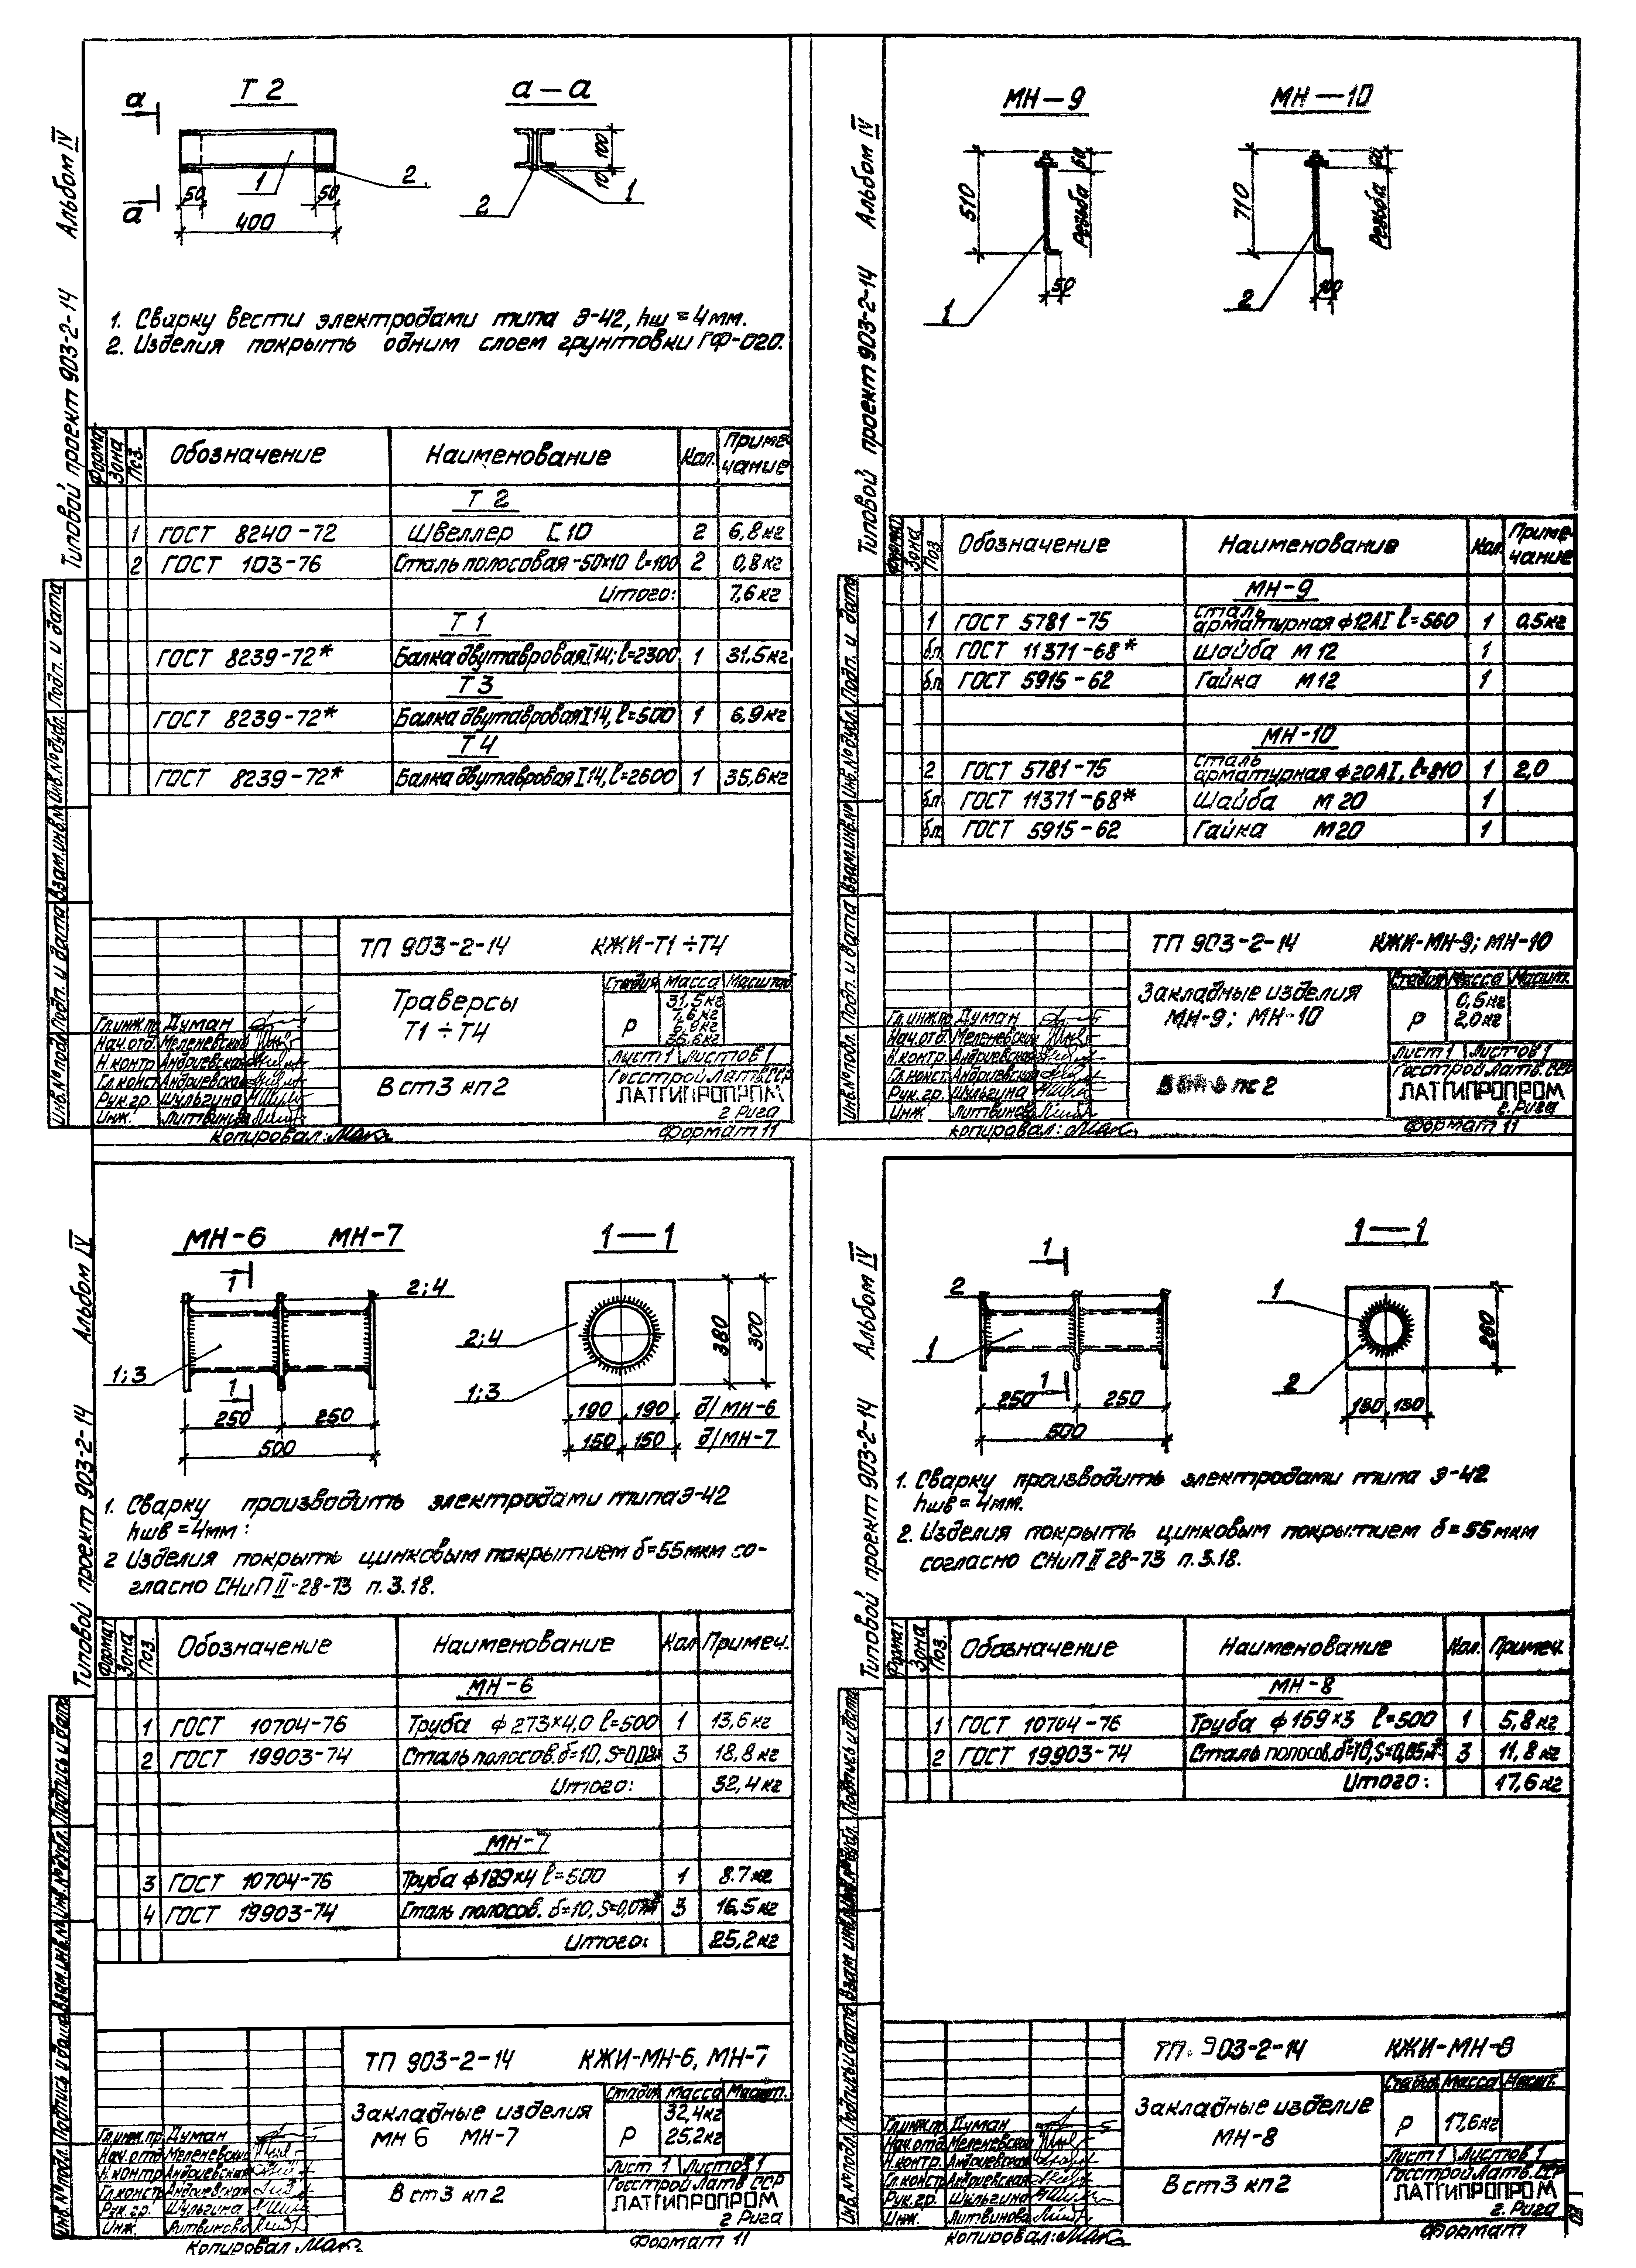 Типовой проект 903-2-14 Альбом IV
Т 2
а — а
а
а
1
2
50
50
400
100
10
2
1
1. Сварку вести электродами типа Э-42, hш = 4 мм.
2. Изделия покрыть одним слоем грунтовки ГФ-020.
Формат Зона Поз. Обозначение Наименование Кол. Приме-чание
Т 2
1 ГОСТ 8240-72 Швеллер [10 2 6,8 кг
2 ГОСТ 103-76 Сталь полосовая -50×10 l=100 2 0,8 кг
Итого: 7,6 кг
Т 1
ГОСТ 8239-72* Балка двутавровая I 14; l=2300 1 31.5 кг
Т 3
ГОСТ 8239-72* Балка двутавровая I 14, l=500 1 6,9 кг
Т 4
ГОСТ 8239-72* Балка двутавровая I 14, l=2600 1 35,6 кг
Инв.№ подл. Подп. и дата Взам.инв.№ Инв.№ дубл. Подп. и дата
ТП 903-2-14 КЖИ-Т1÷Т4
Траверсы
Т1 ÷ Т4
Стадия Масса Масштаб
Р
31,5 кг
7,6 кг
6,9 кг
35,6 кг
Лист 1 Листов 1
Гл.инж.пр. Думан
Нач.отд. Меленевский
Н.контр. Андриевская
Гл.конст. Андриевская
Рук.гр. Шульгина
Инж. Литвинова
В ст3 кп2
Госстрой Латв.ССР
ЛАТГИПРОПРОМ
г. Рига
Копировал: Мак
Формат 11
Типовой проект 903-2-14 Альбом IV
МН—9
МН—10
510
60
Резьба
50
1
710
60
Резьба
100
2
Формат Зона Поз Обозначение Наименование Кол. Приме-чание
МН-9
1 ГОСТ 5781-75 Сталь арматурная ф12АI l=560 1 0.5 кг
б.п. ГОСТ 11371-68* Шайба М 12 1
б.п. ГОСТ 5915-62 Гайка М12 1
МН-10
2 ГОСТ 5781-75 Сталь арматурная ф20АI, l=810 1 2,0
б.п. ГОСТ 11371-68* Шайба М 20 1
б.п. ГОСТ 5915-62 Гайка М20 1
Инв.№ подл. Подп. и дата Взам.инв.№ Инв.№ дубл. Подп. и дата
ТП 903-2-14 КЖИ-МН-9; МН-10
Закладные изделия
МН-9; МН-10
Стадия Масса Масшт.
Р
0,5 кг
2,0 кг
Лист 1 Листов 1
Гл.инж.пр. Думан
Нач.отд. Меленевский
Н.контр. Андриевская
Гл.конст. Андриевская
Рук.гр. Шульгина
Инж Литвинова
пс 2
Госстрой Латв. ССР
ЛАТГИПРОПРОМ
г. Рига
копировал: Мак
Формат 11
Типовой проект 903-2-14 Альбом IV
МН-6 МН-7
1—1
1
1
2;4
1;3
250
250
500
2;4
1;3
380
300
190 190 д/МН-6
150 150 д/МН-7
1. Сварку производить электродами типа Э-42
hшв = 4мм:
2 Изделия покрыть цинковым покрытием δ=55мкм со-
гласно СНиП II-28-73 п.3.18.
Формат Зона Поз. Обозначение Наименование Кол Примеч.
МН-6
1 ГОСТ 10704-76 Труба ф 273×4,0 l=500 1 13,6 кг
2 ГОСТ 19903-74 Сталь полосов. δ=10, 3 18,8 кг
Итого: 32,4 кг
МН-7
3 ГОСТ 10704-76 Труба l=500 1 8.7 кг
4 ГОСТ 19903-74 Сталь полосов. δ=10, 3 16,5 кг
Итого: 25,2 кг
Инв.№ подл. Подпись и дата Взам.инв.№ Инв.№ дубл. Подпись и дата
ТП 903-2-14 КЖИ-МН-6, МН-7
Закладные изделия
МН 6 МН-7
Стадия Масса Масшт.
Р
32,4кг
25,2кг
Лист 1 Листов 1
Гл.инж.пр. Думан
Нач.отд Меленевский
Н.контр Андриевская
Гл.констр Андриевская
Рук.гр. Шульгина
Инж. Литвинова
В ст3 кп2
Госстрой Латв ССР
ЛАТГИПРОПРОМ
г Рига
Копировал Мак
Формат 11
Типовой проект 903-2-14 Альбом IV
1—1
1
1
2
1
250
250
500
1
2
260
130 130
1. Сварку производить электродами типа Э-42
hшв = 4мм.
2. Изделия покрыть цинковым покрытием δ=55мкм
согласно СНиП II 28-73 п.3.18.
Формат Зона Поз. Обозначение Наименование Кол. Примеч.
МН-8
1 ГОСТ 10704-76 Труба ф 159×3 l=500 1 5,8 кг
2 ГОСТ 19903-74 Сталь полосов. δ=10, S=0,05м² 3 11,8 кг
Итого: 17,6 кг
Инв.№ подл. Подпись и дата Взам.инв.№ Инв.№ дубл. Подпись и дата
ТП. 903-2-14 КЖИ-МН-8
Закладные изделие
МН-8
Стадия Масса Масшт.
Р 17,6кг
Лист 1 Листов 1
Гл.инж.пр Думан
Нач.отд Меленевский
Н.контр. Андриевская
Гл.констр Андриевская
Рук.гр. Шульгина
Инж. Литвинова
В ст3 кп2
Госстрой Латв. ССР
ЛАТГИПРОПРОМ
г. Рига
Копировал: Мак
Формат